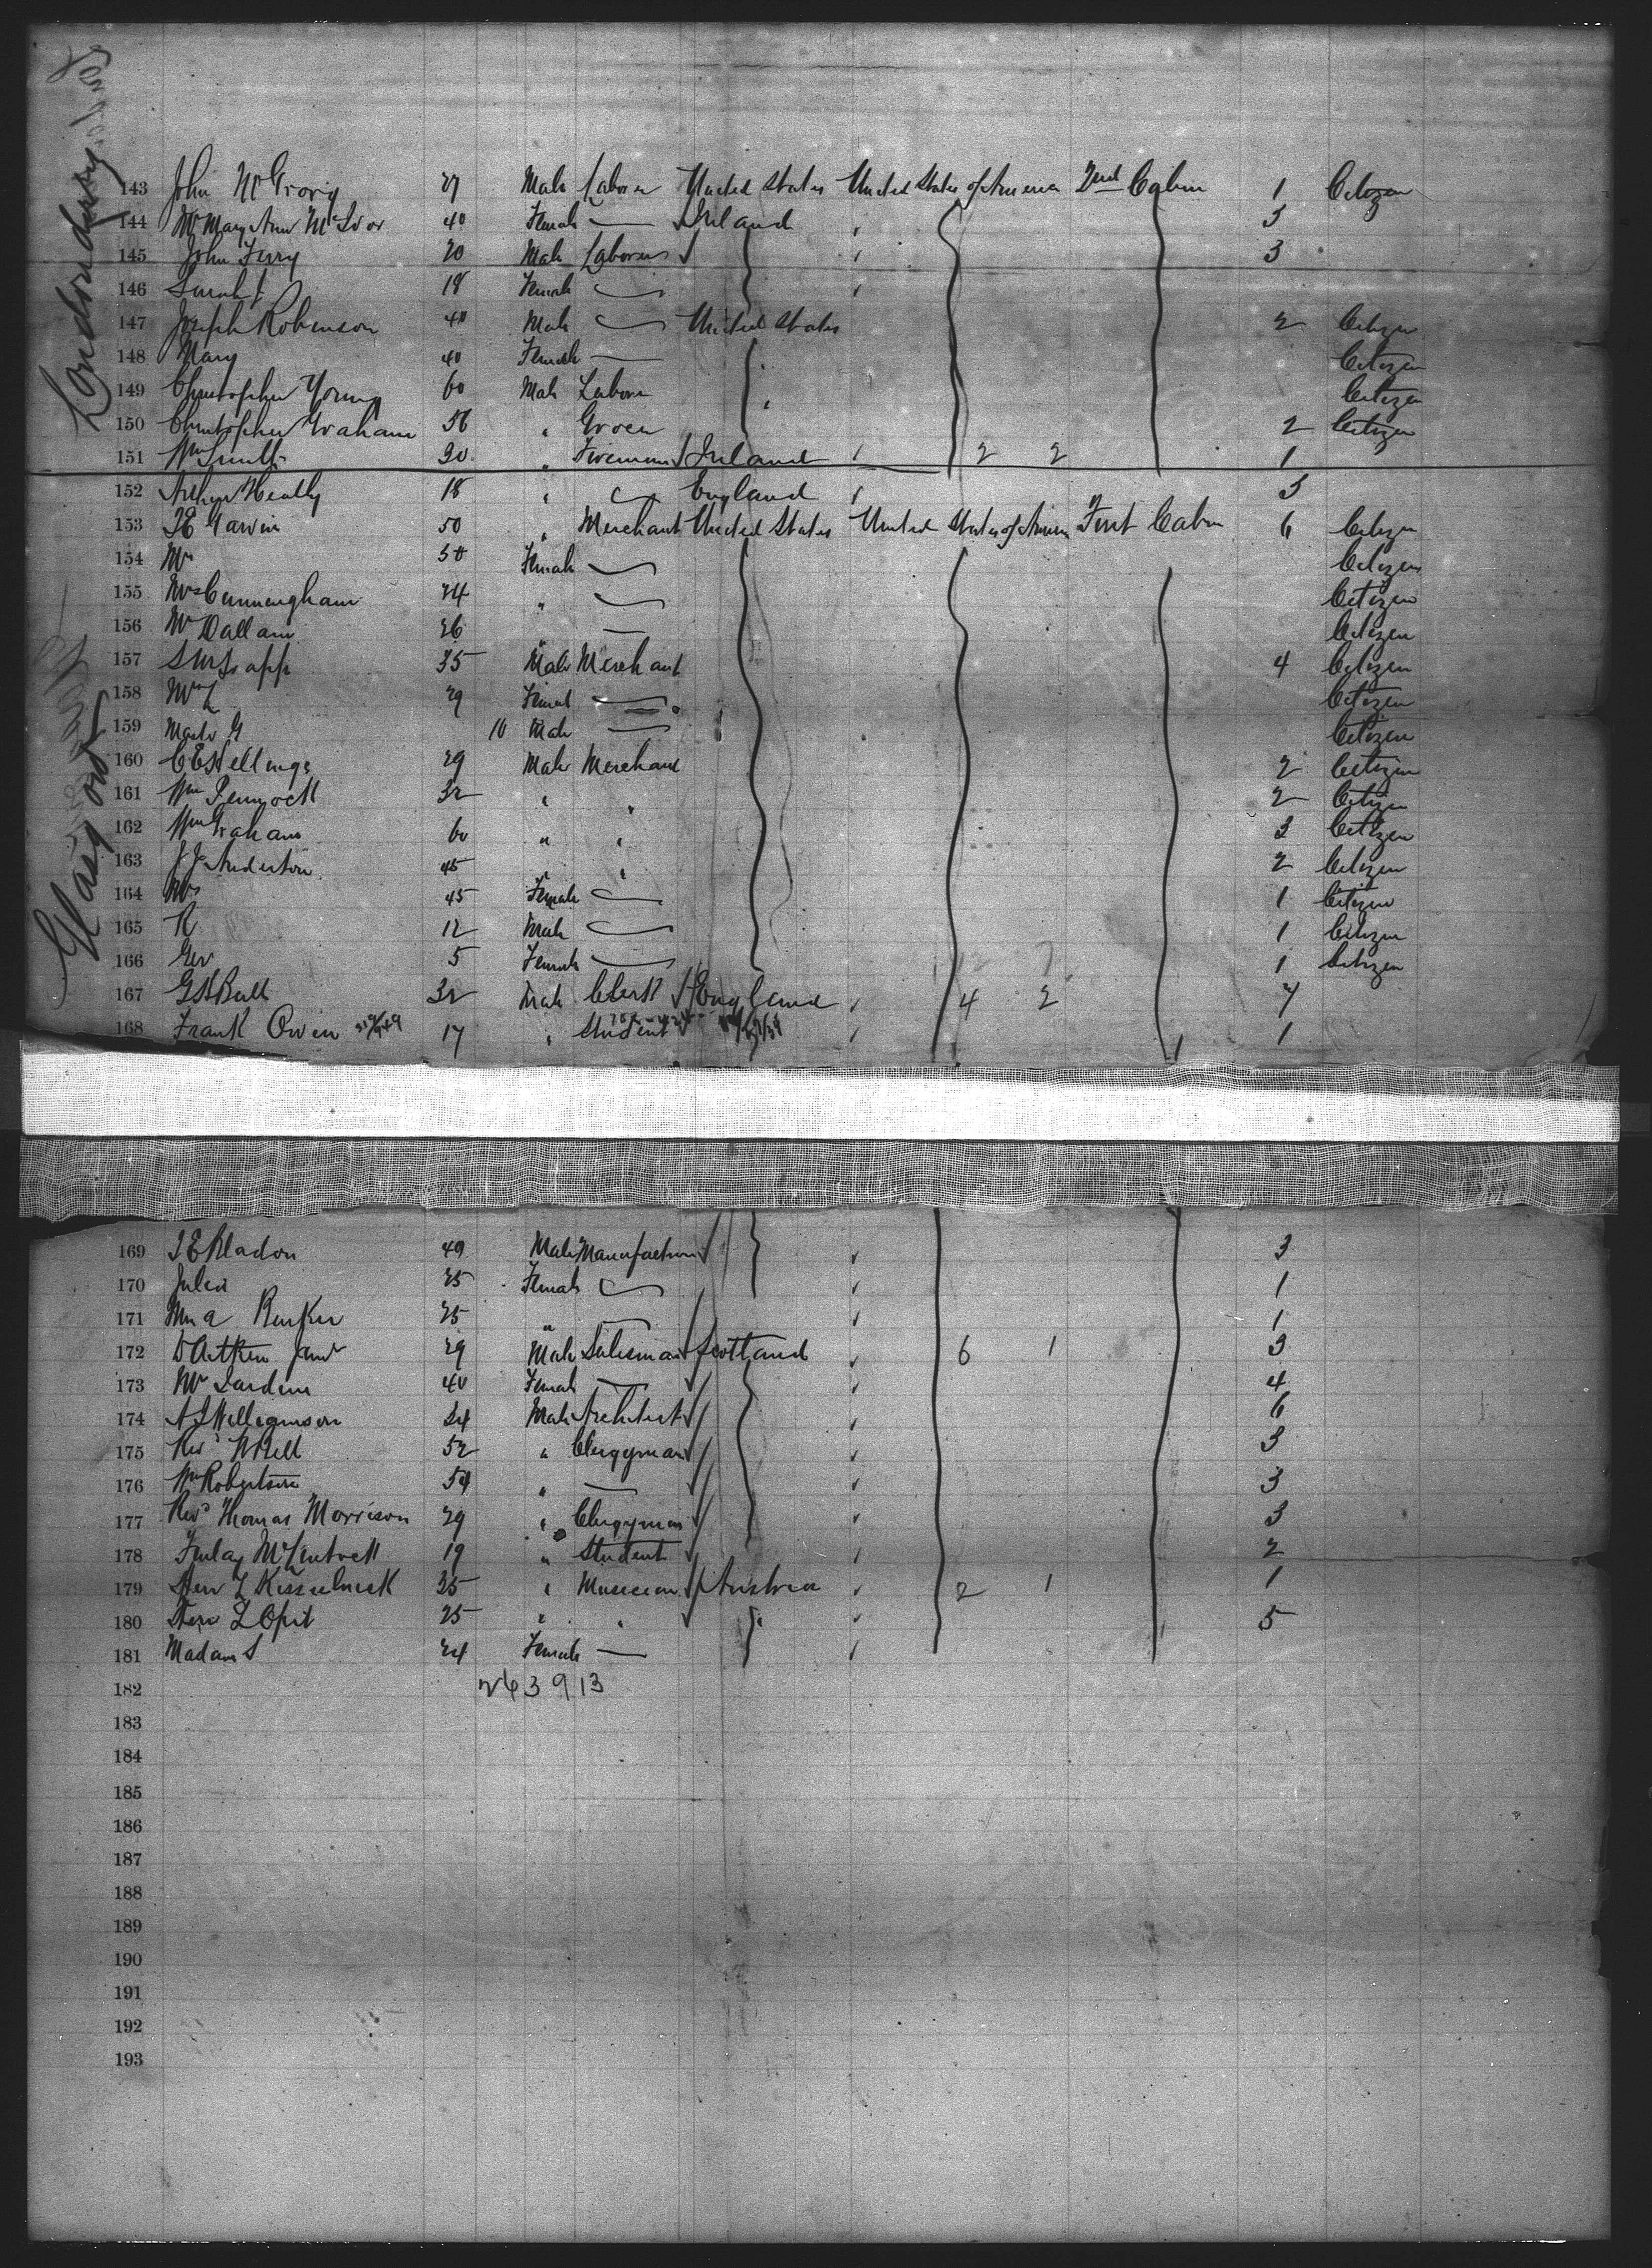 Londonderry
Glasgow
143 John McGrory 27 Male Laborer United States United States of America 2nd Cabin 1 Citizen
144 Mrs Mary Ann McIvor 40 Female — Ireland 3
145 John Ferry 20 Male Laborer 3
146 Sarah F 18 Female —
147 Joseph Robinson 40 Male — United States 2 Citizen
148 Mary 40 Female — Citizen
149 Christopher Young 60 Male Laborer Citizen
150 Christopher Graham 56 " Grocer 2 Citizen
151 Wm Smith 30 " Fireman Ireland 2 2 1
152 Arthur Heally 18 " — England 3
153 Garvin 50 " Merchant United States United States of America First Cabin 6 Citizen
154 Mrs 50 Female — Citizen
155 Mrs Cunningham 24 " — Citizen
156 Mrs Dallam 26 — Citizen
157 35 Male Merchant 4 Citizen
158 Mrs L 29 Female — Citizen
159 Mastr G 10 Male — Citizen
160 29 Male Merchant 2 Citizen
161 Wm Pennock 32 " " 2 Citizen
162 Wm Graham 60 " " 3 Citizen
163 J J Anderton 45 " " 2 Citizen
164 Mrs 45 Female — 1 Citizen
165 R 12 Male — 1 Citizen
166 5 Female — 1 Citizen
167 G H Ball 32 Male Clerk England 4 2 7
168 Frank Owen 17 " Student 1
169 49 Male Manufacturer 3
170 Julia 25 Female — 1
171 25 " — 1
172 D Aitken Junr 29 Male Salesman Scotland 6 1 3
173 Mrs Jardine 40 Female — 4
174 Williamson 24 Male Architect 6
175 Revd Bell 52 " Clergyman 3
176 Wm Robertson 54 " — 3
177 Revd Thomas Morrison 29 " Clergyman 3
178 Finlay 19 " Student 2
179 Herr 35 " Musician Austria 2 1 1
180 Herr 25 " " " 5
181 Madam S 24 Female —
182 263913
183
184
185
186
187
188
189
190
191
192
193